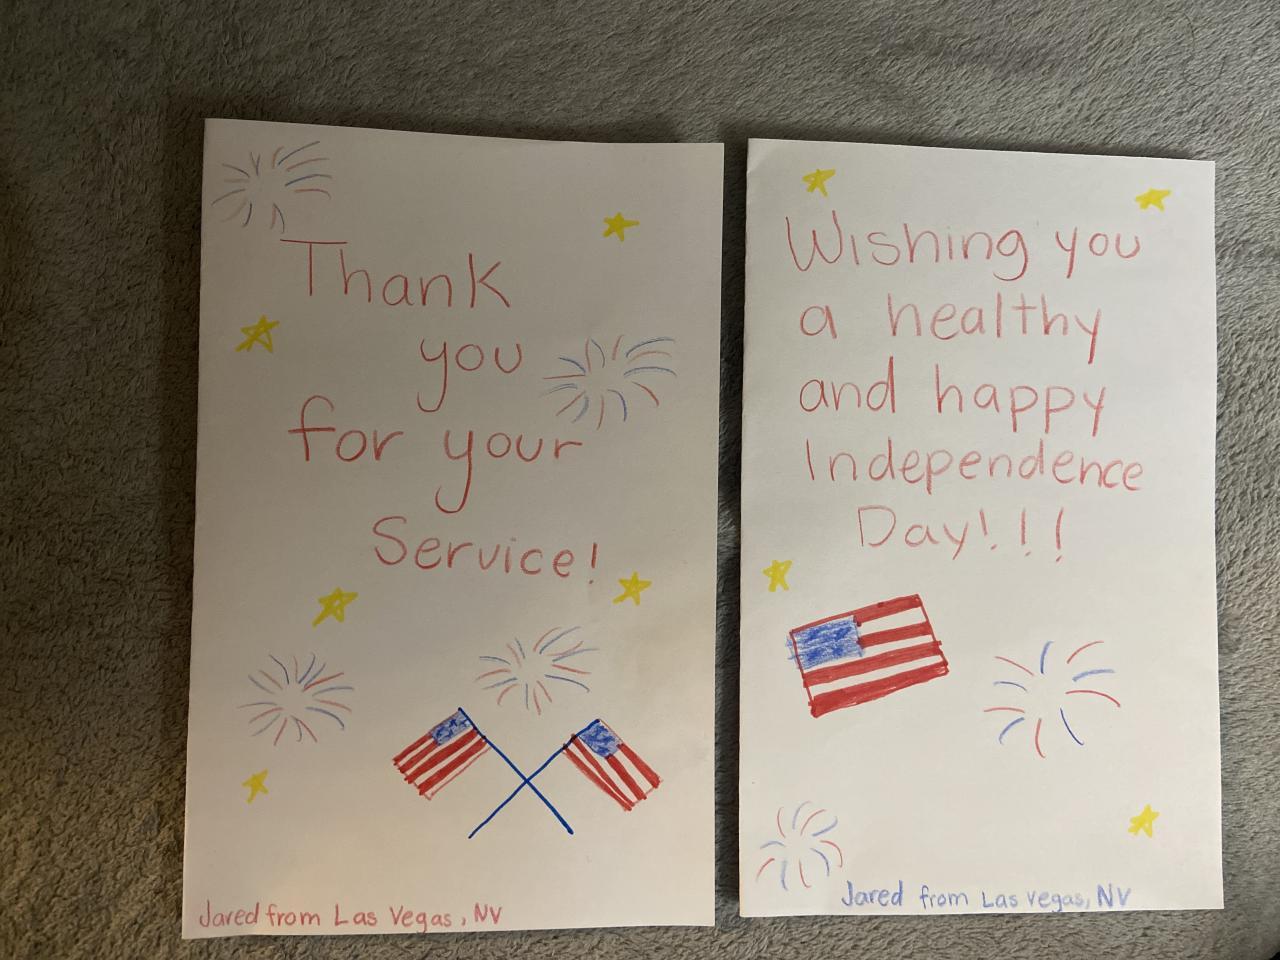 Thank
you
for your
Service!
Jared from Las Vegas, NV
Wishing you
a healthy
and happy
Independence
Day!!!
Jared from Las Vegas, NV